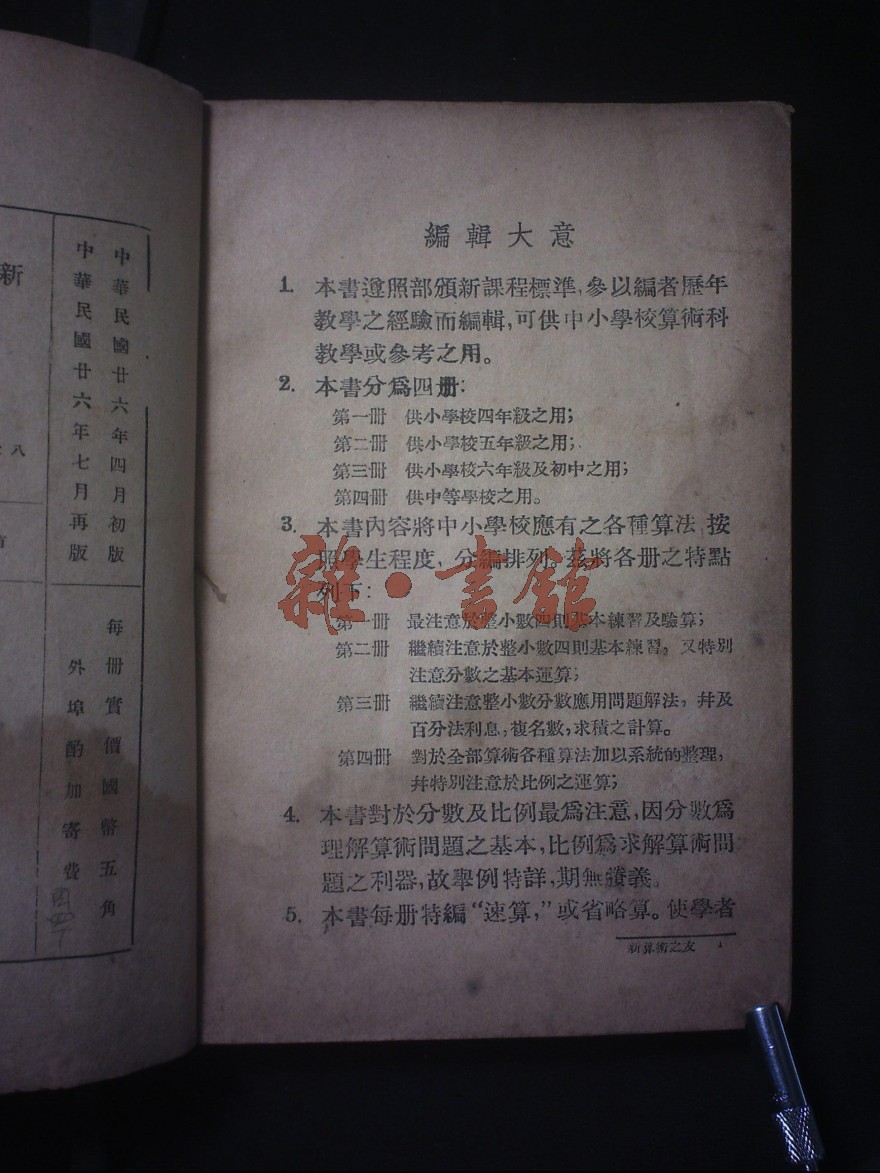 編輯大意
1. 本書遵照部頒新課程標準,參以編者歷年
教學之經驗而編輯,可供中小學校算術科
教學或參考之用。
2. 本書分爲四册:
第一册 供小學校四年級之用;
第二册 供小學校五年級之用;
第三册 供小學校六年級及初中之用;
第四册 供中等學校之用。
3. 本書內容將中小學校應有之各種算法,按
照學生程度,分編排列。茲將各册之特點
列下:
第一册 最注意於整小數四則基本練習及驗算;
第二册 繼續注意於整小數四則基本練習。又特別
注意分數之基本運算;
第三册 繼續注意整小數分數應用問題解法,幷及
百分法利息,複名數,求積之計算。
第四册 對於全部算術各種算法加以系統的整理,
幷特別注意於比例之運算;
4. 本書對於分數及比例最爲注意,因分數爲
理解算術問題之基本,比例爲求解算術問
題之利器,故舉例特詳,期無賸義。
5. 本書每册特編“速算,”或省略算。使學者
新算術之友 1
雜·書館
新
中華民國廿六年四月初版
中華民國廿六年七月再版
每册實價國幣五角
外埠酌加寄費
八